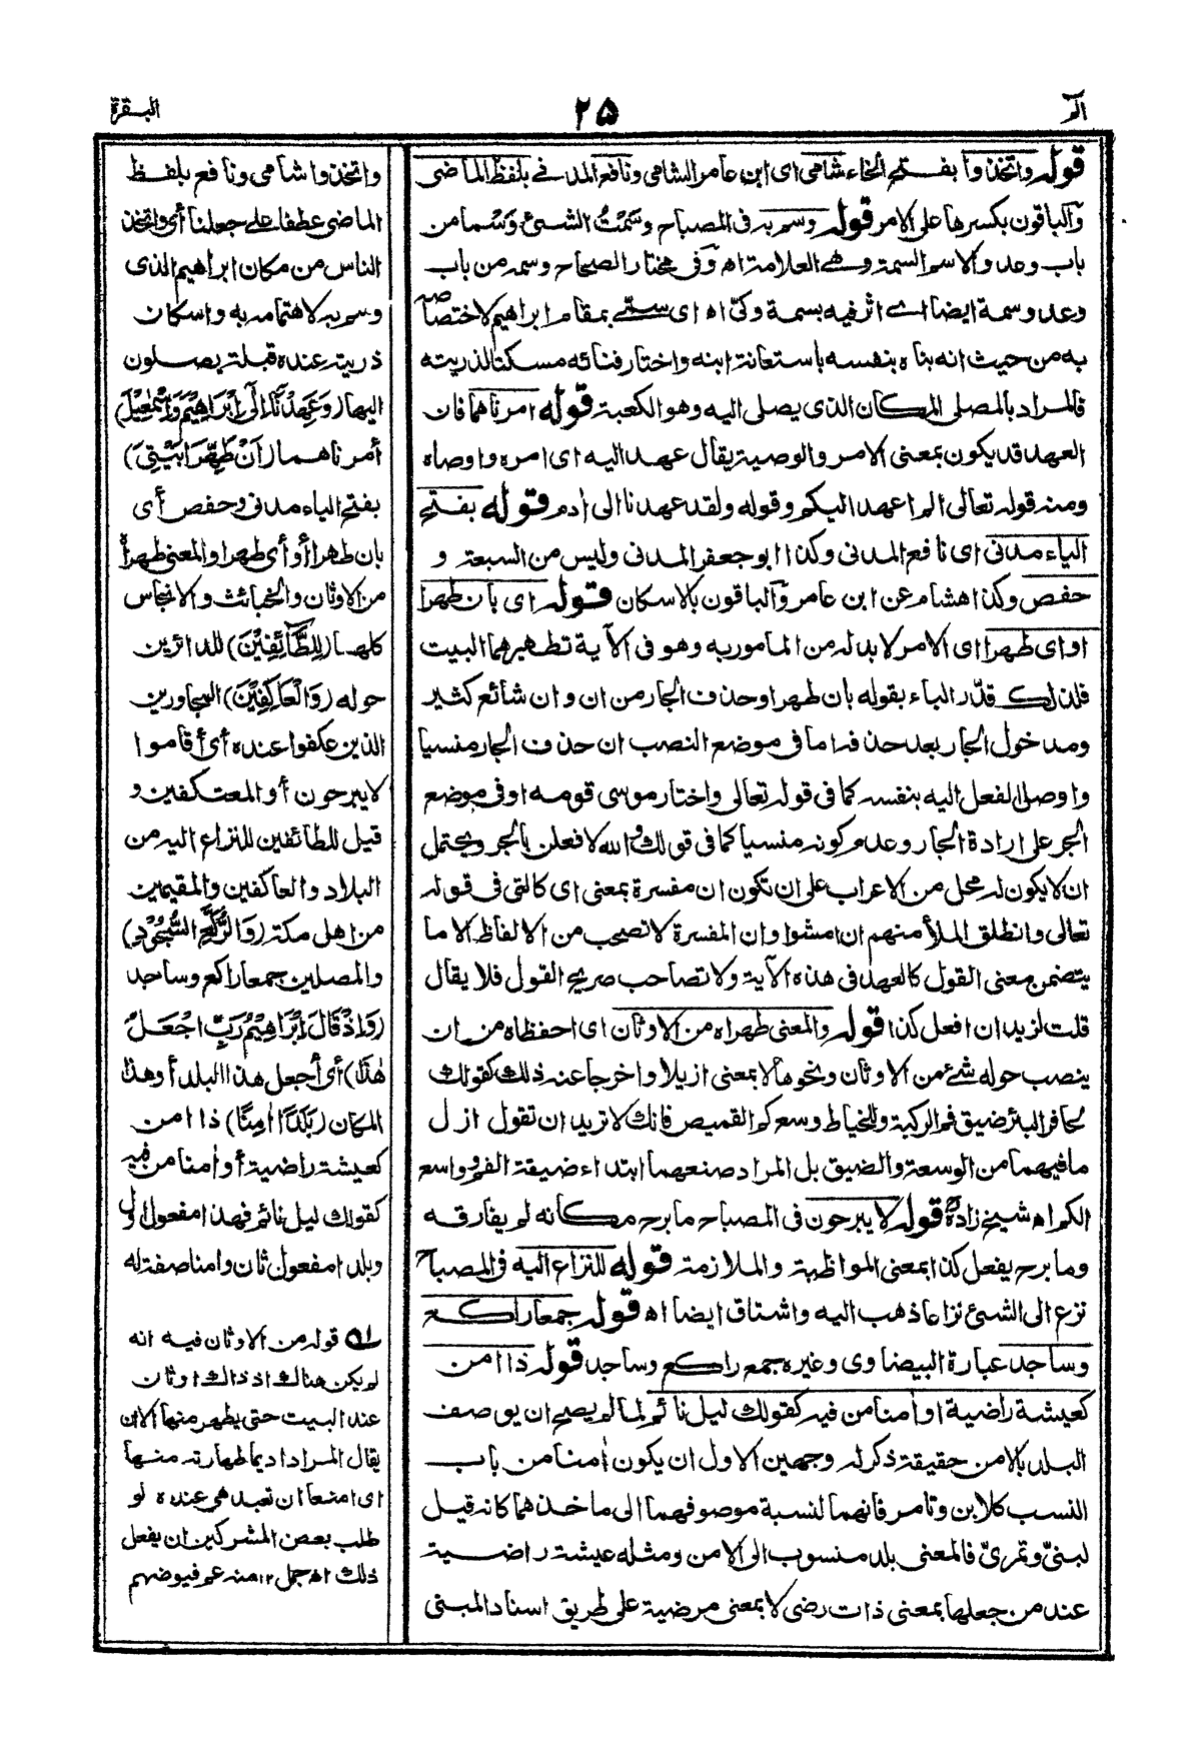 الۤمۤ
۲۵
البقرة
قوله واتخذوا بفتح الخاء شامي اى ابن عامر الشامي ونافع المدني بلفظ الماضى
والباقون بكسرها على الامر قوله وسم به فى المصباح وسَمْتُ الشىء وَسْما من
باب وعد والاسم السمة وهي العلامة اه وفى مختار الصحاح وسمه من باب
وعد وسمة ايضا اى اثر فيه بسمة وكىّ اه اى سمّى بمقام ابراهيم لاختصاصه
به من حيث انه بناه بنفسه باستعانة ابنه واختار فنائه مسكنا لذريته
فالمراد بالمصلى المكان الذى يصلى اليه وهو الكعبة قوله امرناهما فان
العهد قد يكون بمعنى الامر والوصية يقال عهد اليه اى امره واوصاه
ومنه قوله تعالى الم اعهد اليكم وقوله ولقد عهدنا الى ادم قوله بفتح
الياء مدنى اى نافع المدنى وكذا ابو جعفر المدنى وليس من السبعة و
حفص وكذا هشام عن ابن عامر والباقون بالاسكان قوله اى بان طهرا
او اى طهرا اى الامر لا بد له من المامور به وهو فى الآية تطهيرهما البيت
فلذلك قدّر الباء بقوله بان طهرا وحذف الجار من ان و ان شائع كثير
ومدخول الجار بعد حذفه اما فى موضع النصب ان حذف الجار منسيا
واوصل الفعل اليه بنفسه كما فى قوله تعالى واختار موسى قومه او فى موضع
الجر على ارادة الجار وعدم كونه منسيا كما فى قولك والله لافعلن بالجر ويحتمل
ان لا يكون له محل من الاعراب على ان تكون ان مفسرة بمعنى اى كالتى فى قوله
تعالى وانطلق الملأ منهم ان امشوا وان المفسرة لا تصحب من الالفاظ الا ما
يتضمن معنى القول كالعهد فى هذه الآية ولا تصاحب صريح القول فلا يقال
قلت لزيد ان افعل كذا قوله والمعنى طهراه من الاوثان اى احفظاه من ان
ينصب حوله شئ من الاوثان ونحوها لا بمعنى ازيلا واخرجا عند ذلك كقولك
لحافر البئر ضيق فم الركية وللخياط وسع كم القميص فانك لا تريد ان تقول ازل
ما فيهما من الوسعة والضيق بل المراد صنعهما ابتداء ضيقة الفم وواسع
الكم اه شيخ زادة قوله لا يبرحون فى المصباح ما برح مكانه لم يفارقه
وما برح يفعل كذا بمعنى المواظبة والملازمة قوله للنزاع اليه فى المصباح
نزع الى الشىء نزاعا ذهب اليه واشتاق ايضا اه قوله جمعا راكع
وساجد عبارة البيضاوى وغيره جمع راكع وساجد قوله ذا امن
كعيشة راضية او امنا من فيه كقولك ليل نائم لما لم يصح ان يوصف
البلد بالامن حقيقة ذكر له وجهين الاول ان يكون امنا من باب
النسب كلابن وتامر فانهما لنسبة موصوفهما الى ماخذهما كانه قيل
لبنىّ وتمرىّ فالمعنى بلد منسوب الى الامن ومثله عيشة راضية
عند من جعلها بمعنى ذات رضى لا بمعنى مرضية على طريق اسناد المبنى
واتخذوا شامى ونافع بلفظ
الماضى عطفا على جعلنا أى واتخذ
الناس من مكان ابراهيم الذى
وسم به لاهتمامه به واسكان
ذريته عنده قبلة يصلون
اليها (وَعَهِدْنَا إِلَىٰ إِبْرَاهِيْمَ وَإِسْمٰعِيْلَ)
أمرناهما (أَنْ طَهِّرَا بَيْتِىَ)
بفتح الياء مدنى وحفص أى
بان طهرا أو أى طهرا والمعنى طهراه
من الاوثان والخبائث والانجاس
كلها (لِلطَّآئِفِيْنَ) للدائرين
حوله (وَالْعَاكِفِيْنَ) المجاورين
الذين عكفوا عنده أى أقاموا
لا يبرحون أو المعتكفين و
قيل للطائفين للنزاع اليه من
البلاد والعاكفين والمقيمين
من اهل مكة (وَالرُّكَّعِ السُّجُوْدِ)
والمصلين جمعا راكع وساجد
(وَإِذْ قَالَ إِبْرَاهِيْمُ رَبِّ اجْعَلْ
هٰذَا) أى أجعل هذا البلد أو هذا
المكان (بَلَدًا اٰمِنًا) ذا امن
كعيشة راضية أو اٰمنا من فيه
كقولك ليل نائم فهذا مفعول اول
وبلدا مفعول ثان وامنا صفة له
قوله من الاوثان فيه انه
لم يكن هنالك اذ ذالك اوثان
عند البيت حتى يطهر منها الا ان
يقال المراد اديما طهارته منها
اى امنعا ان تعبد هى عنده لو
طلب بعض المشركين ان يفعل
ذلك اه جمل ۱۲ منه عم فيوضهم